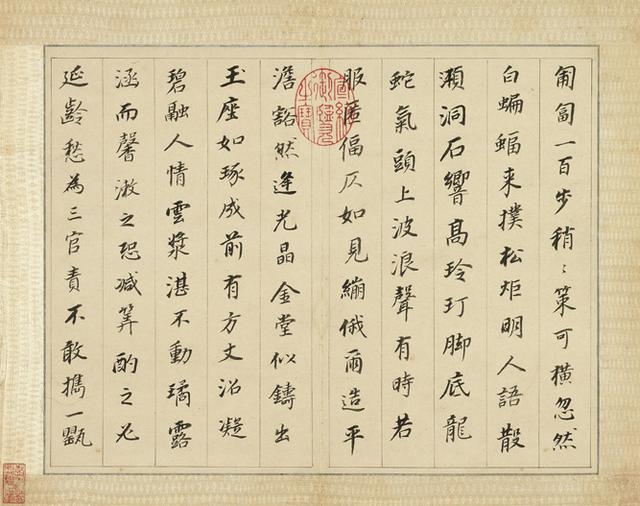 匍匐一百步稍〻策可橫忽然
白蝙蝠来撲松炬明人語散
澒洞石響髙玲玎脚底龍
蛇氣頭上波浪聲有時若
服匿偪仄如見繃俄爾造平
澹豁然逢光晶金堂似鑄出
玉座如琢成前有方丈沼凝
碧融人情雲漿湛不動璚露
涵而馨漱之恐減筭酌之必
延齡愁為三官責不敢攜一甖